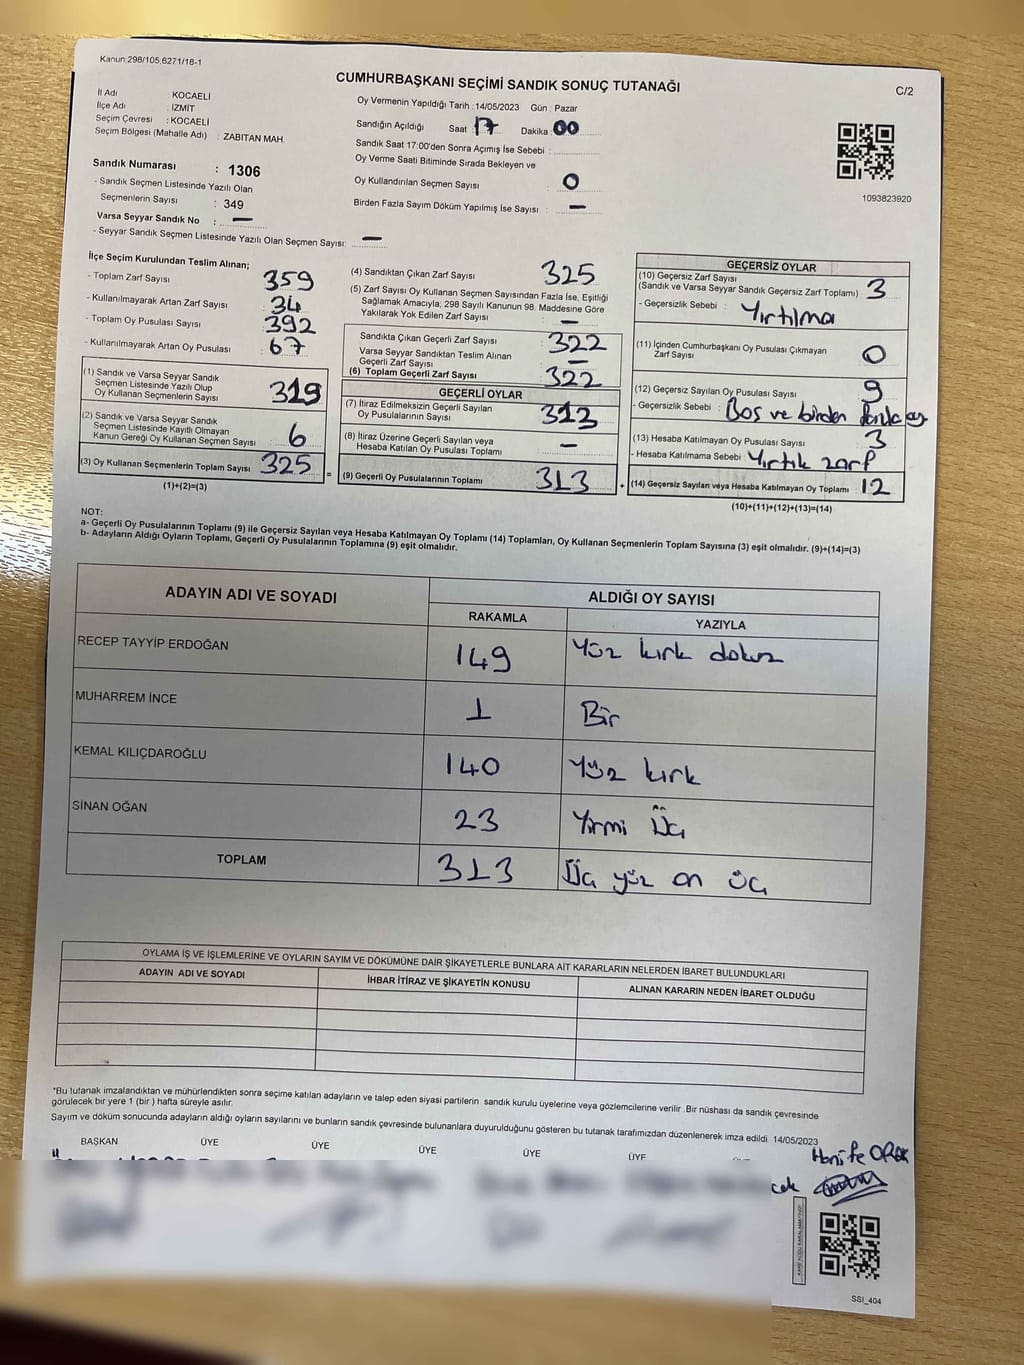 Kanun:298/105,6271/18-1
CUMHURBAŞKANI SEÇİMİ SANDIK SONUÇ TUTANAĞI
C/2
İl Adı : KOCAELİ
İlçe Adı : İZMİT
Seçim Çevresi : KOCAELİ
Seçim Bölgesi (Mahalle Adı) : ZABITAN MAH.
Sandık Numarası : 1306
- Sandık Seçmen Listesinde Yazılı Olan
Seçmenlerin Sayısı : 349
Varsa Seyyar Sandık No : —
- Seyyar Sandık Seçmen Listesinde Yazılı Olan Seçmen Sayısı: —
Oy Vermenin Yapıldığı Tarih : 14/05/2023 Gün : Pazar
Sandığın Açıldığı Saat : 17 Dakika : 00
Sandık Saat 17:00'den Sonra Açımış İse Sebebi :
Oy Verme Saati Bitiminde Sırada Bekleyen ve
Oy Kullandırılan Seçmen Sayısı : 0
Birden Fazla Sayım Döküm Yapılmış İse Sayısı : —
1093823920
İlçe Seçim Kurulundan Teslim Alınan;
- Toplam Zarf Sayısı : 359
- Kullanılmayarak Artan Zarf Sayısı : 34
- Toplam Oy Pusulası Sayısı : 392
- Kullanılmayarak Artan Oy Pusulası : 67
(1) Sandık ve Varsa Seyyar Sandık
Seçmen Listesinde Yazılı Olup
Oy Kullanan Seçmenlerin Sayısı : 319
(2) Sandık ve Varsa Seyyar Sandık
Seçmen Listesinde Kayıtlı Olmayan
Kanun Gereği Oy Kullanan Seçmen Sayısı : 6
(3) Oy Kullanan Seçmenlerin Toplam Sayısı : 325
(1)+(2)=(3)
(4) Sandıktan Çıkan Zarf Sayısı : 325
(5) Zarf Sayısı Oy Kullanan Seçmen Sayısından Fazla İse, Eşitliği
Sağlamak Amacıyla; 298 Sayılı Kanunun 98. Maddesine Göre
Yakılarak Yok Edilen Zarf Sayısı : —
Sandıkta Çıkan Geçerli Zarf Sayısı : 322
Varsa Seyyar Sandıktan Teslim Alınan
Geçerli Zarf Sayısı : —
(6) Toplam Geçerli Zarf Sayısı : 322
GEÇERLİ OYLAR
(7) İtiraz Edilmeksizin Geçerli Sayılan
Oy Pusulalarının Sayısı : 313
(8) İtiraz Üzerine Geçerli Sayılan veya
Hesaba Katılan Oy Pusulası Toplamı : —
=
(9) Geçerli Oy Pusulalarının Toplamı : 313
+
GEÇERSİZ OYLAR
(10) Geçersiz Zarf Sayısı
(Sandık ve Varsa Seyyar Sandık Geçersiz Zarf Toplamı) : 3
- Geçersizlik Sebebi : Yırtılma
(11) İçinden Cumhurbaşkanı Oy Pusulası Çıkmayan
Zarf Sayısı : 0
(12) Geçersiz Sayılan Oy Pusulası Sayısı : 9
- Geçersizlik Sebebi : Boş ve birden fazla oy
(13) Hesaba Katılmayan Oy Pusulası Sayısı : 3
- Hesaba Katılmama Sebebi : Yırtık zarf
(14) Geçersiz Sayılan veya Hesaba Katılmayan Oy Toplamı : 12
(10)+(11)+(12)+(13)=(14)
NOT:
a- Geçerli Oy Pusulalarının Toplamı (9) ile Geçersiz Sayılan veya Hesaba Katılmayan Oy Toplamı (14) Toplamları, Oy Kullanan Seçmenlerin Toplam Sayısına (3) eşit olmalıdır. (9)+(14)=(3)
b- Adayların Aldığı Oyların Toplamı, Geçerli Oy Pusulalarının Toplamına (9) eşit olmalıdır.
ADAYIN ADI VE SOYADI
ALDIĞI OY SAYISI
RAKAMLA YAZIYLA
RECEP TAYYİP ERDOĞAN 149 Yüz kırk dokuz
MUHARREM İNCE 1 Bir
KEMAL KILIÇDAROĞLU 140 Yüz kırk
SİNAN OĞAN 23 Yirmi Üç
TOPLAM 313 Üç yüz on üç
OYLAMA İŞ VE İŞLEMLERİNE VE OYLARIN SAYIM VE DÖKÜMÜNE DAİR ŞİKAYETLERLE BUNLARA AİT KARARLARIN NELERDEN İBARET BULUNDUKLARI
ADAYIN ADI VE SOYADI İHBAR İTİRAZ VE ŞİKAYETİN KONUSU ALINAN KARARIN NEDEN İBARET OLDUĞU
*Bu tutanak imzalandıktan ve mühürlendikten sonra seçime katılan adayların ve talep eden siyasi partilerin sandık kurulu üyelerine veya gözlemcilerine verilir. Bir nüshası da sandık çevresinde
görülecek bir yere 1 (bir) hafta süreyle asılır.
Sayım ve döküm sonucunda adayların aldığı oyların sayılarını ve bunların sandık çevresinde bulunanlara duyurulduğunu gösteren bu tutanak tarafımızdan düzenlenerek imza edildi. 14/05/2023
BAŞKAN ÜYE ÜYE ÜYE ÜYE ÜYE
Hanife
SSI_404